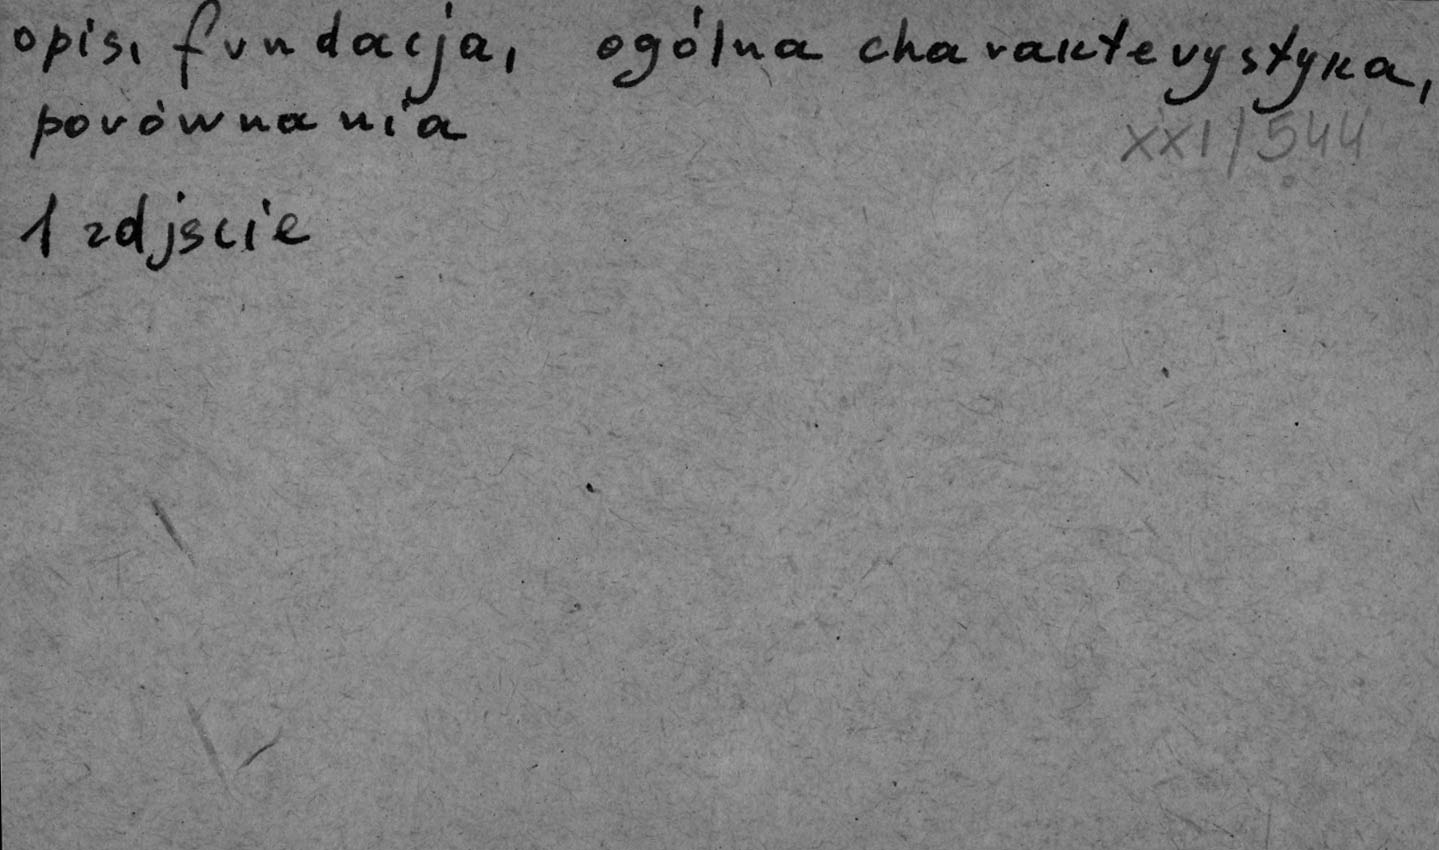 opis, fundacja, ogólna charakterystyka,
porównania
XXI/544
1 zdjscie